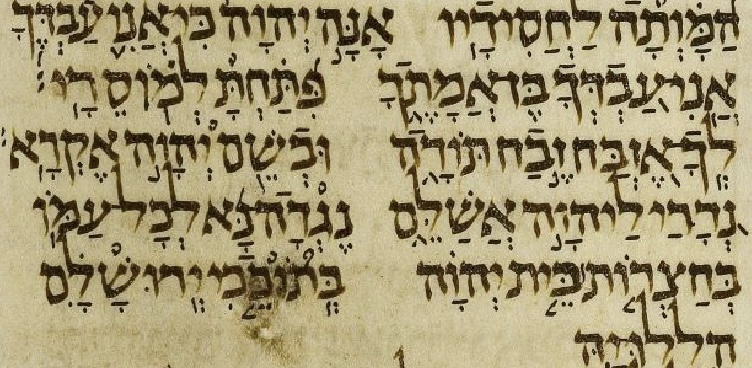 הַמָּוְתָה לַחֲסִידָיו אָנָּה יְהוָה כִּי אֲנִי עַבְדֶּךָ
אֲנִי עַבְדְּךָ בֶּן אֲמָתֶךָ פִּתַּחְתָּ לְמוֹסֵרָי
לְךָ אֶזְבַּח זֶבַח תּוֹדָה וּבְשֵׁם יְהוָה אֶקְרָא
נְדָרַי לַיהוָה אֲשַׁלֵּם נֶגְדָה נָּא לְכָל עַמּוֹ
בְּחַצְרוֹת בֵּית יְהוָה בְּתוֹכֵכִי יְרוּשָׁלִָם
הַלְלוּ יָהּ